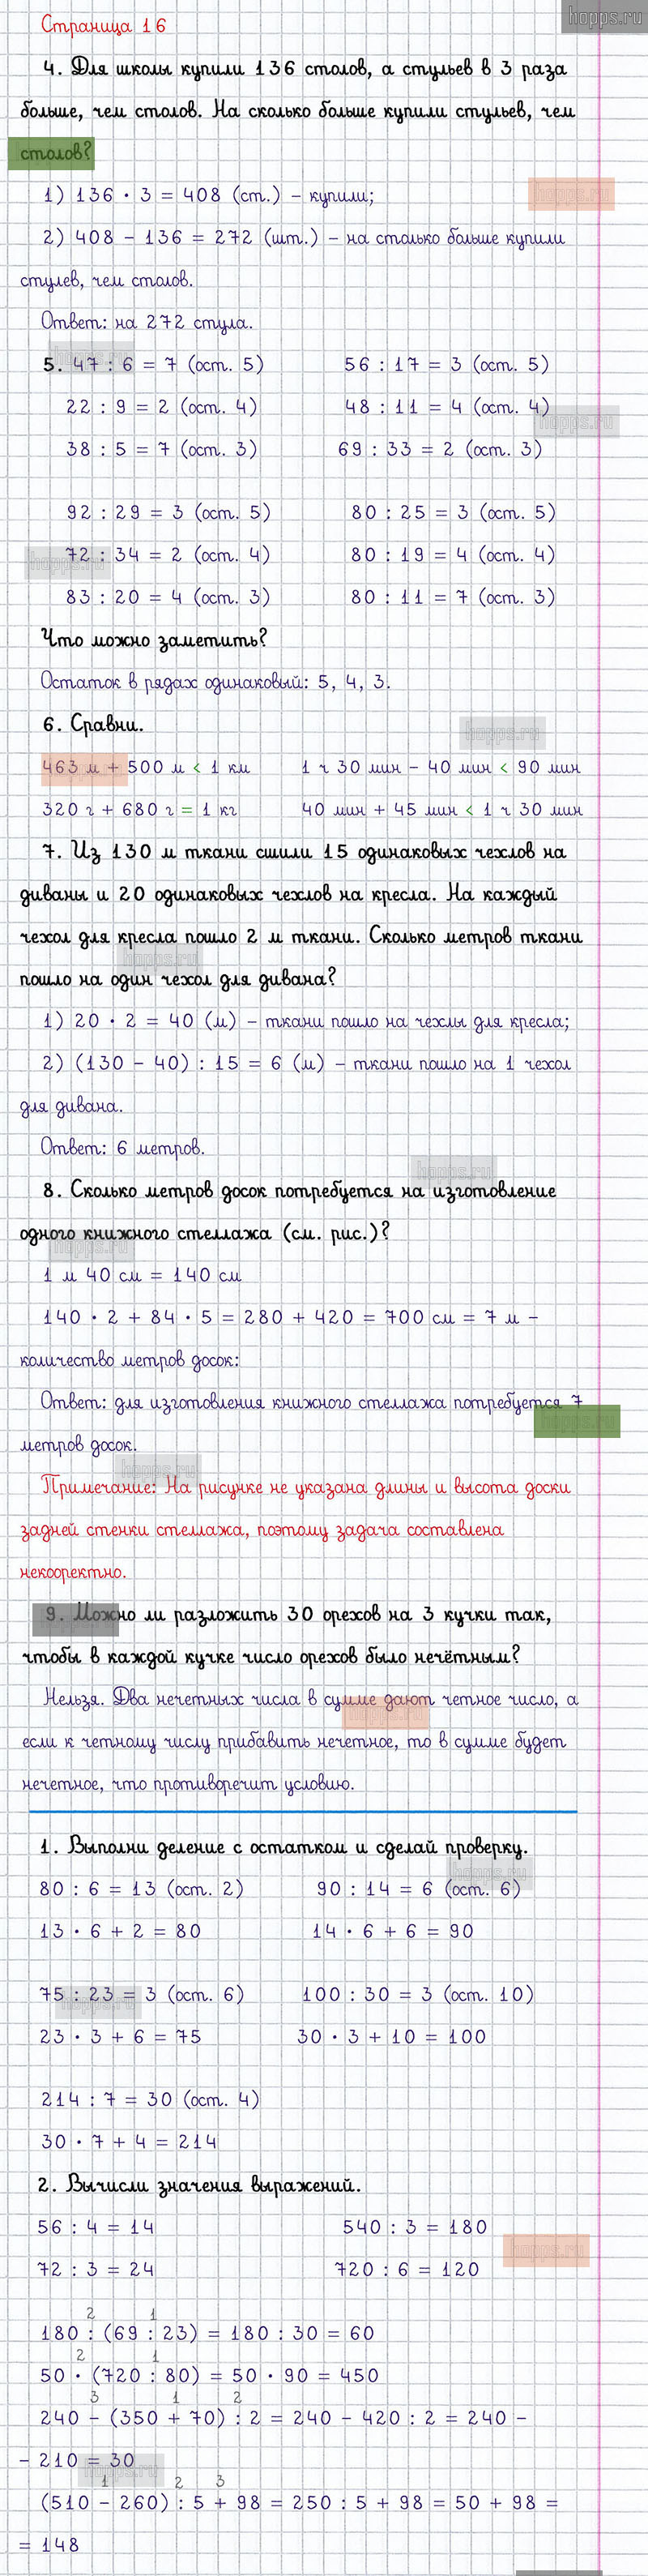 hopps.ru
Страница 16
4. Для школы купили 136 столов, а стульев в 3 раза
больше, чем столов. На сколько больше купили стульев, чем
столов?
1) 136 · 3 = 408 (ст.) – купили;
hopps.ru
2) 408 – 136 = 272 (шт.) – на столько больше купили
стулев, чем столов.
Ответ: на 272 стула.
hopps.ru
5. 47 : 6 = 7 (ост. 5) 56 : 17 = 3 (ост. 5)
22 : 9 = 2 (ост. 4) 48 : 11 = 4 (ост. 4)
hopps.ru
38 : 5 = 7 (ост. 3) 69 : 33 = 2 (ост. 3)
92 : 29 = 3 (ост. 5) 80 : 25 = 3 (ост. 5)
72 : 34 = 2 (ост. 4) 80 : 19 = 4 (ост. 4)
hopps.ru
83 : 20 = 4 (ост. 3) 80 : 11 = 7 (ост. 3)
Что можно заметить?
Остаток в рядах одинаковый: 5, 4, 3.
6. Сравни.
hopps.ru
463 м + 500 м < 1 км 1 ч 30 мин – 40 мин < 90 мин
320 г + 680 г = 1 кг 40 мин + 45 мин < 1 ч 30 мин
7. Из 130 м ткани сшили 15 одинаковых чехлов на
диваны и 20 одинаковых чехлов на кресла. На каждый
чехол для кресла пошло 2 м ткани. Сколько метров ткани
hopps.ru
пошло на один чехол для дивана?
1) 20 · 2 = 40 (м) – ткани пошло на чехлы для кресла;
2) (130 – 40) : 15 = 6 (м) – ткани пошло на 1 чехол
для дивана.
Ответ: 6 метров.
hopps.ru
8. Сколько метров досок потребуется на изготовление
одного книжного стеллажа (см. рис.)?
hopps.ru
1 м 40 см = 140 см
140 · 2 + 84 · 5 = 280 + 420 = 700 см = 7 м –
количество метров досок:
Ответ: для изготовления книжного стеллажа потребуется 7
hopps.ru
метров досок.
hopps.ru
Примечание: На рисунке не указана длины и высота доски
задней стенки стеллажа, поэтому задача составлена
некооректно.
9. Можно ли разложить 30 орехов на 3 кучки так,
чтобы в каждой кучке число орехов было нечётным?
Нельзя. Два нечетных числа в сумме дают четное число, а
hopps.ru
если к четному числу прибавить нечетное, то в сумме будет
нечетное, что противоречит условию.
1. Выполни деление с остатком и сделай проверку.
hopps.ru
80 : 6 = 13 (ост. 2) 90 : 14 = 6 (ост. 6)
13 · 6 + 2 = 80 14 · 6 + 6 = 90
75 : 23 = 3 (ост. 6) 100 : 30 = 3 (ост. 10)
hopps.ru
23 · 3 + 6 = 75 30 · 3 + 10 = 100
214 : 7 = 30 (ост. 4)
30 · 7 + 4 = 214
2. Вычисли значения выражений.
56 : 4 = 14 540 : 3 = 180
hopps.ru
72 : 3 = 24 720 : 6 = 120
2 1
180 : (69 : 23) = 180 : 30 = 60
2 1
50 · (720 : 80) = 50 · 90 = 450
3 1 2
240 – (350 + 70) : 2 = 240 – 420 : 2 = 240 –
– 210 = 30
hopps.ru
1 2 3
(510 – 260) : 5 + 98 = 250 : 5 + 98 = 50 + 98 =
= 148